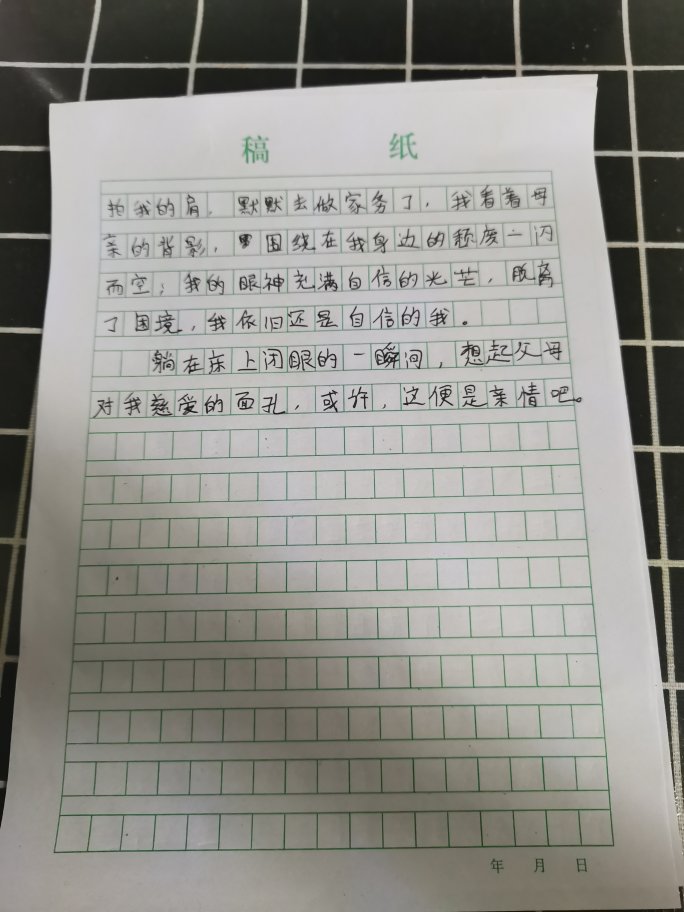 稿 纸
拍我的肩，默默去做家务了，我看着母
亲的背影，围绕在我身边的颓废一闪
而空；我的眼神充满自信的光芒，脱离
了困境，我依旧还是自信的我。
躺在床上闭眼的一瞬间，想起父母
对我慈爱的面孔，或许，这便是亲情吧。
年 月 日